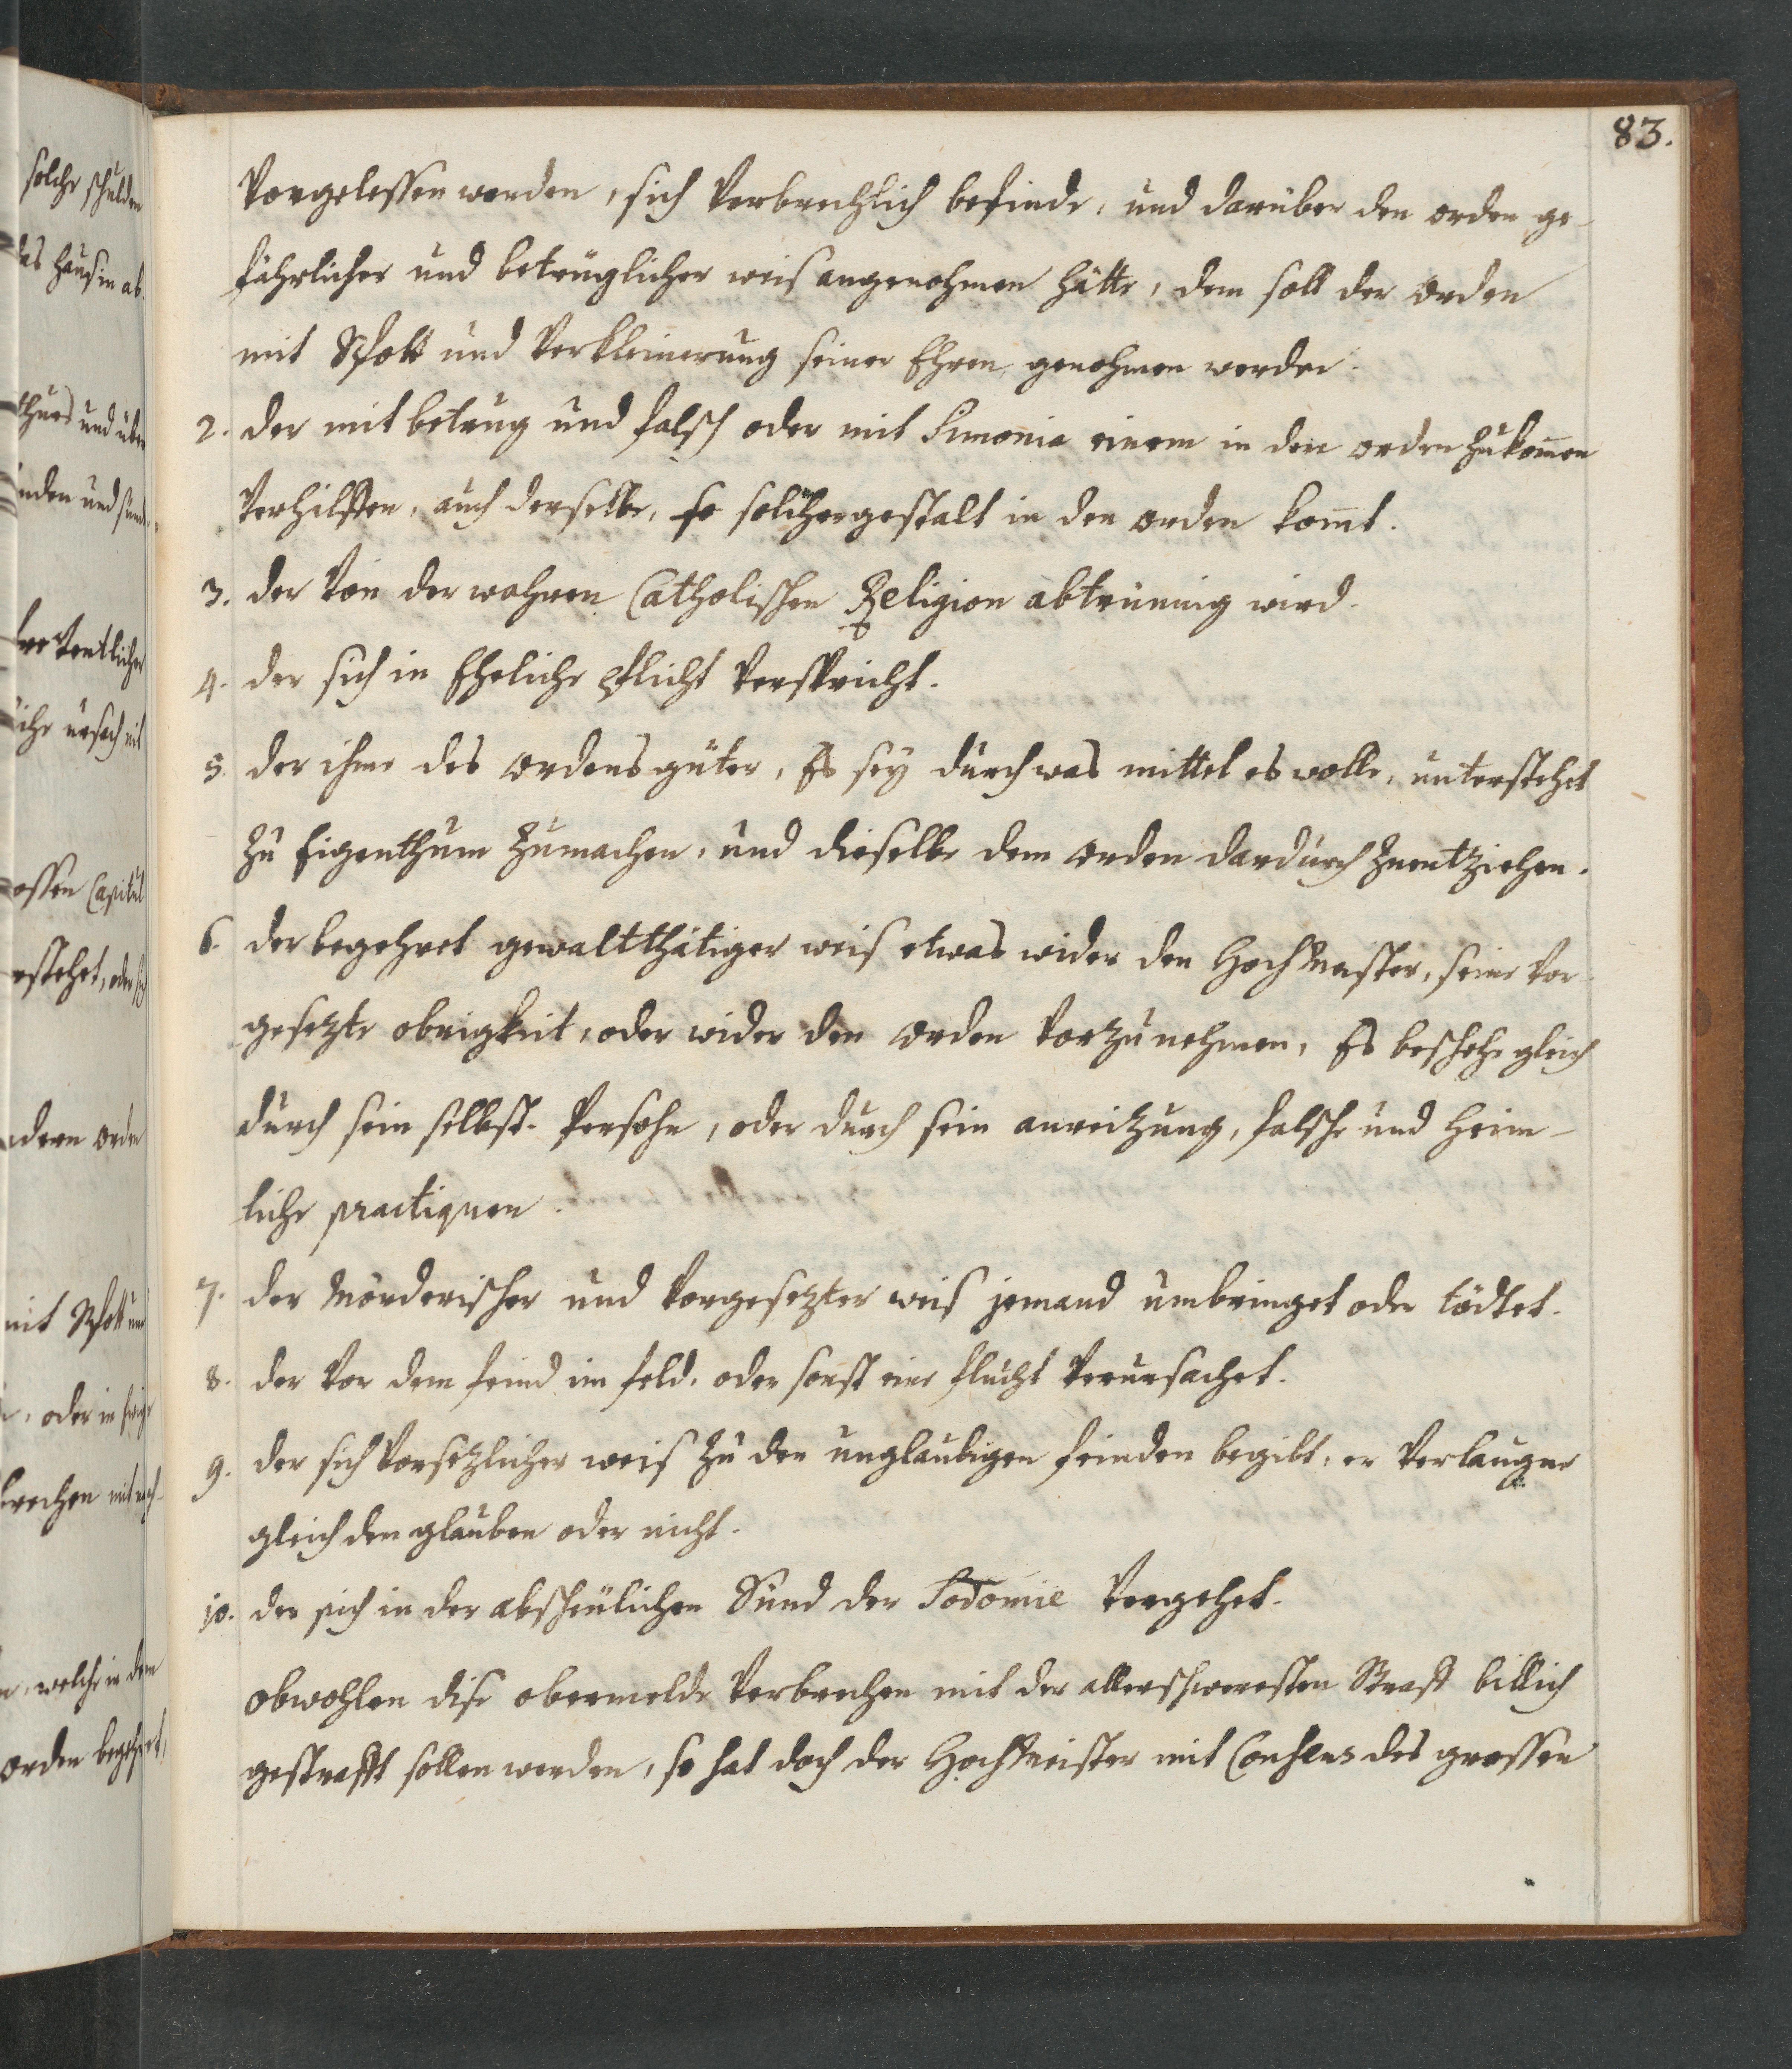 83.
solche schulden
das Hauß in ab
thuns und über
inden und
ihr ursach mit
ossen Capitul
rstehet, oder sich
ndern orden
mit Spott und
oder in
brechen mit nach
welche in dem
orden begehret,
Vorgelessen werden, sich Verbrechlich befinde, und darüber den orden ge-
fährlicher und betrüglicher weis angenohmen hätte, dem soll der Orden
mit Spott und Verkleinerung seiner Ehren genohmen werden.
2. der mit betrug und falsch oder mit Simonia einem in den orden zukom̄en
Verhilffen, auch derselbe, so solchergestalt in den orden kom̄t.
3. der Von der wahren Catholischen Religion abtrünnig wird.
4. der sich in Eheliche pflicht Verspricht.
5. der ihme des Ordens güter, Es sey durch was mittel es wolle, unterstehet
zu Eigenthum zumachen, und dieselbe dem Orden dardurch zuentziehen.
6. der begehret gewaltthätiger weis etwas wider den Hochmeister, seine Vor-
gesetzte obrigkeit, oder wider den Orden Vorzunehmen, Es beschehe gleich
durch sein selbst-Persohn, oder durch sein anreitzung, falsche und Heim-
liche practiquen.
7. der Mörderischer und Vorgesetzter weis jemand umbringet oder tödtet.
8. der Vor dem feind im feld, oder sonst eine flucht Verursachet.
9. der sich Vorsetzlicher weis zu den unglaubigen feinden begibt, er Verlaugne
gleich den glauben oder nicht.
10. der sich in der abscheulichen Sünd der Sodomie Vergehet.
obwohlen dise obermelde Verbrechen mit der allerschweresten Straff billich
gestrafft sollen werden, so hat doch der Hochmeister mit Consens des grossen